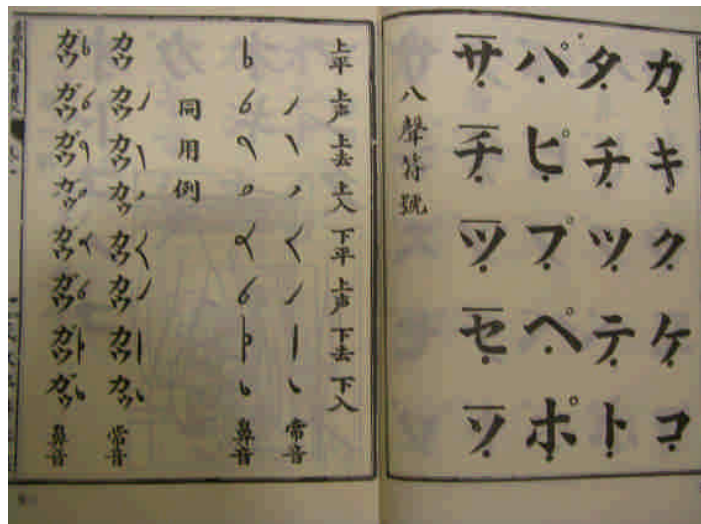 カ̣キ̣ク̣ケ̣コ̣
タ̣チ̣ツ̣テ̣ト̣
パ̣ピ̣プ̣ペ̣ポ̣
サ̣̅チ̣̅ツ̣̅セ̣̅ソ̣̅
八聲符號
上平 上声 上去 上入 下平 上声 下去 下入
常音
鼻音
同用例
カウ カウ カウ カゥ カウ カウ カウ カゥ 常音
ガウ ガウ ガウ ガゥ ガウ ガウ ガウ ガゥ 鼻音